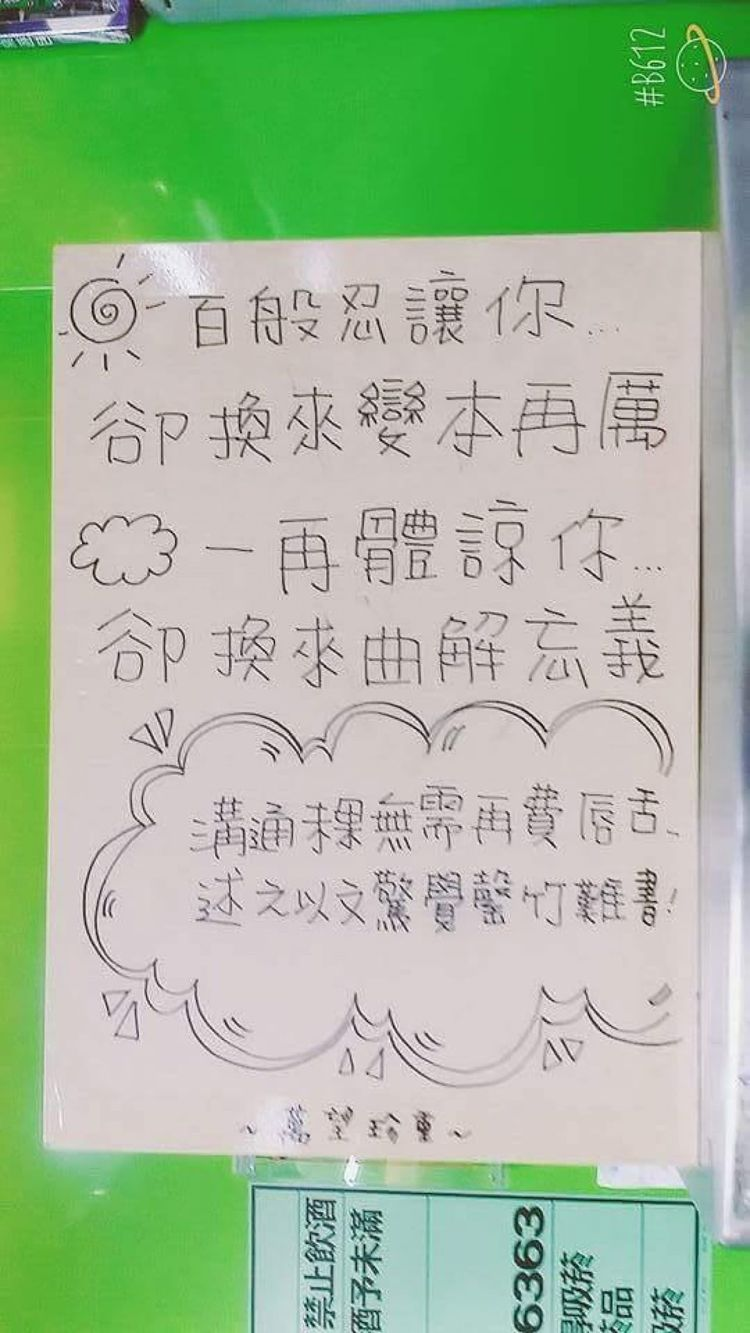 #B612
百般忍讓你...
卻換來變本再厲
一再體諒你...
卻換來曲解忘義
溝通粿無需再費唇舌、
述之以文驚覺罄竹難書!
~萬望珍重~
禁止飲酒
酒予未滿
6363
吸菸
品
吸菸